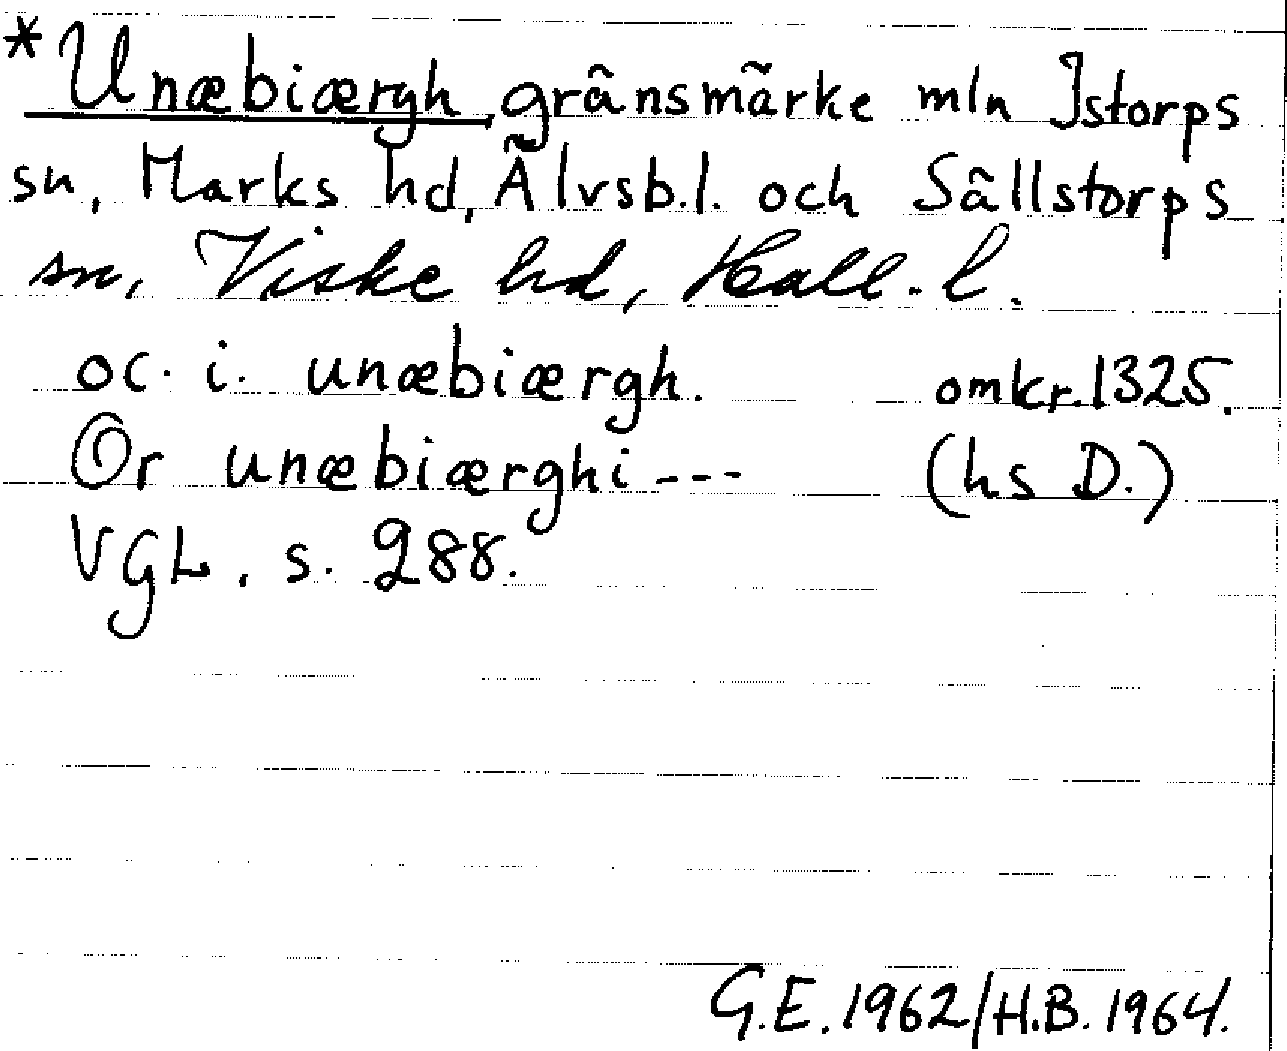 *Unæbiærgh gränsmärke mln Istorps
sn, Marks hd, Älvsb.l. och Sällstorps
sn, Viske hd, Hall. l.
oc. i. unæbiærgh. omkr. 1325.
Or unæbiærghi --- (hs D.)
VGL. s. 288.
G.E. 1962/H.B. 1964.